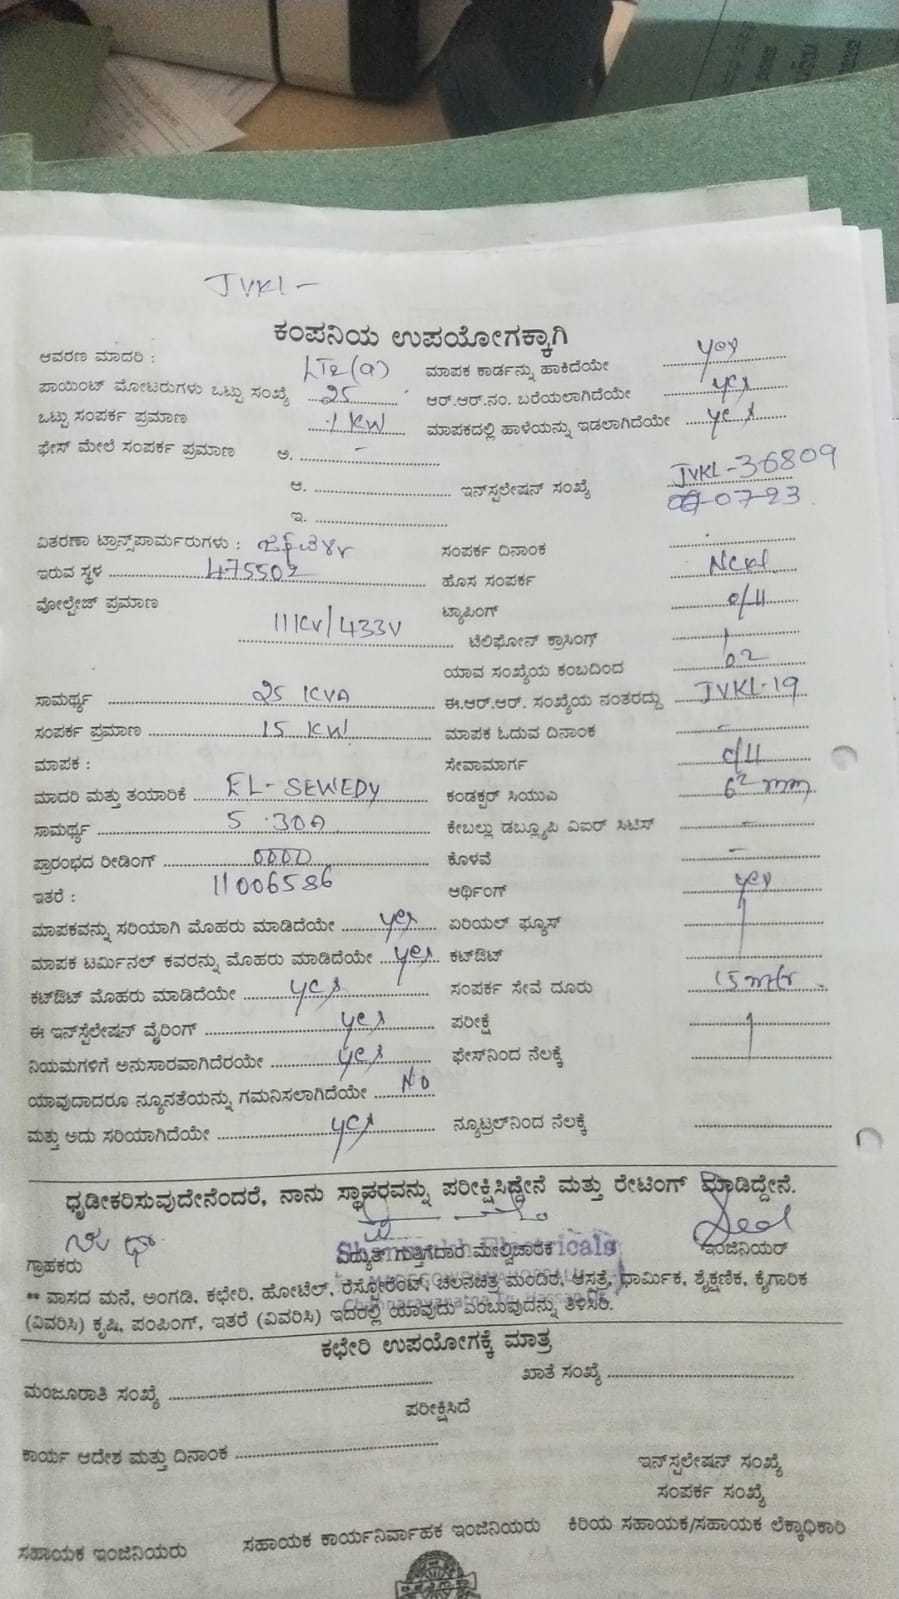 JVKL -
ಕಂಪನಿಯ ಉಪಯೋಗಕ್ಕಾಗಿ
ಆವರಣ ಮಾದರಿ : LT2(a) ಮಾಪಕ ಕಾರ್ಡನ್ನು ಹಾಕಿದೆಯೇ yes
ಪಾಯಿಂಟ್ ಮೋಟರುಗಳು ಒಟ್ಟು ಸಂಖ್ಯೆ 25 ಆರ್.ಆರ್.ನಂ. ಬರೆಯಲಾಗಿದೆಯೇ yes
ಒಟ್ಟು ಸಂಪರ್ಕ ಪ್ರಮಾಣ .1 KW ಮಾಪಕದಲ್ಲಿ ಹಾಳೆಯನ್ನು ಇಡಲಾಗಿದೆಯೇ yes
ಫೇಸ್ ಮೇಲೆ ಸಂಪರ್ಕ ಪ್ರಮಾಣ ಅ. -
ಆ. ಇನ್‌ಸ್ಪಲೇಷನ್ ಸಂಖ್ಯೆ JVKL-36809
ಇ. 07-23
ವಿತರಣಾ ಟ್ರಾನ್ಸ್‌ಪಾರ್ಮರುಗಳು : ಸಂಪರ್ಕ ದಿನಾಂಕ
ಇರುವ ಸ್ಥಳ 475502 ಹೊಸ ಸಂಪರ್ಕ NCKL
ವೋಲ್ಟೇಜ್ ಪ್ರಮಾಣ 11KV/433V ಟ್ಯಾಪಿಂಗ್ o/H
ಟೆಲಿಫೋನ್ ಕ್ರಾಸಿಂಗ್
ಯಾವ ಸಂಖ್ಯೆಯ ಕಂಬದಿಂದ 02
ಸಾಮರ್ಥ್ಯ 25 KVA ಈ.ಆರ್.ಆರ್. ಸಂಖ್ಯೆಯ ನಂತರದ್ದು JVKL-19
ಸಂಪರ್ಕ ಪ್ರಮಾಣ 15 KW ಮಾಪಕ ಓದುವ ದಿನಾಂಕ -
ಮಾಪಕ : ಸೇವಾಮಾರ್ಗ o/H
ಮಾದರಿ ಮತ್ತು ತಯಾರಿಕೆ EL-SEWEDY ಕಂಡಕ್ಟರ್ ಸಿಯುವಿ 6² mm
ಸಾಮರ್ಥ್ಯ 5.30A ಕೇಬಲ್ಲು ಡಬ್ಲ್ಯೂಪಿ ವಿಐರ್ ಸಿಟಿಸ್ -
ಪ್ರಾರಂಭದ ರೀಡಿಂಗ್ 0000 ಕೊಳವೆ -
ಇತರೆ : 11006586 ಆರ್ಥಿಂಗ್ yes
ಮಾಪಕವನ್ನು ಸರಿಯಾಗಿ ಮೊಹರು ಮಾಡಿದೆಯೇ yes ಏರಿಯಲ್ ಫ್ಯೂಸ್
ಮಾಪಕ ಟರ್ಮಿನಲ್ ಕವರನ್ನು ಮೊಹರು ಮಾಡಿದೆಯೇ yes ಕಟ್‌ಔಟ್
ಕಟ್‌ಔಟ್ ಮೊಹರು ಮಾಡಿದೆಯೇ yes ಸಂಪರ್ಕ ಸೇವೆ ದೂರು 15 mtr
ಈ ಇನ್‌ಸ್ಪೆಲೇಷನ್ ವೈರಿಂಗ್ yes ಪರೀಕ್ಷೆ
ನಿಯಮಗಳಿಗೆ ಅನುಸಾರವಾಗಿದೆರಯೇ yes ಫೇಸ್‌ನಿಂದ ನೆಲಕ್ಕೆ
ಯಾವುದಾದರೂ ನ್ಯೂನತೆಯನ್ನು ಗಮನಿಸಲಾಗಿದೆಯೇ No
ಮತ್ತು ಅದು ಸರಿಯಾಗಿದೆಯೇ yes ನ್ಯೂಟ್ರಲ್‌ನಿಂದ ನೆಲಕ್ಕೆ
ಧೃಡೀಕರಿಸುವುದೇನೆಂದರೆ, ನಾನು ಸ್ಥಾಹರವನ್ನು ಪರೀಕ್ಷಿಸಿದ್ದೇನೆ ಮತ್ತು ರೇಟಿಂಗ್ ಮಾಡಿದ್ದೇನೆ.
ಗ್ರಾಹಕರು ವಿದ್ಯುತ್ ಗುತ್ತಿಗೆದಾರ ಮೇಲ್ವಿಚಾರಕ ಇಂಜಿನಿಯರ್
** ವಾಸದ ಮನೆ, ಅಂಗಡಿ, ಕಛೇರಿ, ಹೋಟೆಲ್, ರೆಸ್ಟೋರೆಂಟ್, ಚಲನಚಿತ್ರ ಮಂದಿರ, ಆಸತ್ರೆ, ಧಾರ್ಮಿಕ, ಶೈಕ್ಷಣಿಕ, ಕೈಗಾರಿಕ
(ವಿವರಿಸಿ) ಕೃಷಿ, ಪಂಪಿಂಗ್, ಇತರೆ (ವಿವರಿಸಿ) ಇದರಲ್ಲಿ ಯಾವುದು ಎಂಬುವುದನ್ನು ತಿಳಿಸಿರಿ.
ಕಛೇರಿ ಉಪಯೋಗಕ್ಕೆ ಮಾತ್ರ
ಮಂಜೂರಾತಿ ಸಂಖ್ಯೆ ಖಾತೆ ಸಂಖ್ಯೆ
ಪರೀಕ್ಷಿಸಿದೆ
ಕಾರ್ಯ ಆದೇಶ ಮತ್ತು ದಿನಾಂಕ
ಇನ್‌ಸ್ಪಲೇಷನ್ ಸಂಖ್ಯೆ
ಸಂಪರ್ಕ ಸಂಖ್ಯೆ
ಸಹಾಯಕ ಇಂಜಿನಿಯರು ಸಹಾಯಕ ಕಾರ್ಯನಿರ್ವಾಹಕ ಇಂಜಿನಿಯರು ಕಿರಿಯ ಸಹಾಯಕ/ಸಹಾಯಕ ಲೆಕ್ಕಾಧಿಕಾರಿ